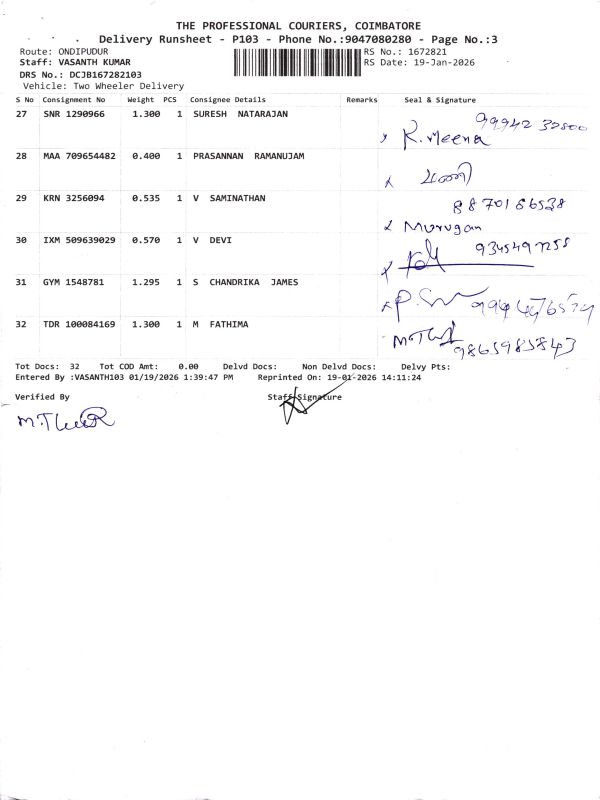 THE PROFESSIONAL COURIERS, COIMBATORE
Delivery Runsheet - P103 - Phone No.:9047080280 - Page No.:3
Route: ONDIPUDUR RS No.: 1672821
Staff: VASANTH KUMAR RS Date: 19-Jan-2026
DRS No.: DCJB167282103
Vehicle: Two Wheeler Delivery
S No Consignment No Weight PCS Consignee Details Remarks Seal & Signature
27 SNR 1290966 1.300 1 SURESH NATARAJAN
99942 32500
R. Meena
28 MAA 709654482 0.400 1 PRASANNAN RAMANUJAM
29 KRN 3256094 0.535 1 V SAMINATHAN
8870166538
Murugan
30 IXM 509639029 0.570 1 V DEVI
31 GYM 1548781 1.295 1 S CHANDRIKA JAMES
32 TDR 100084169 1.300 1 M FATHIMA
9865985843
Tot Docs: 32 Tot COD Amt: 0.00 Delvd Docs: Non Delvd Docs: Delvy Pts:
Entered By :VASANTH103 01/19/2026 1:39:47 PM Reprinted On: 19-01-2026 14:11:24
Verified By Staff Signature